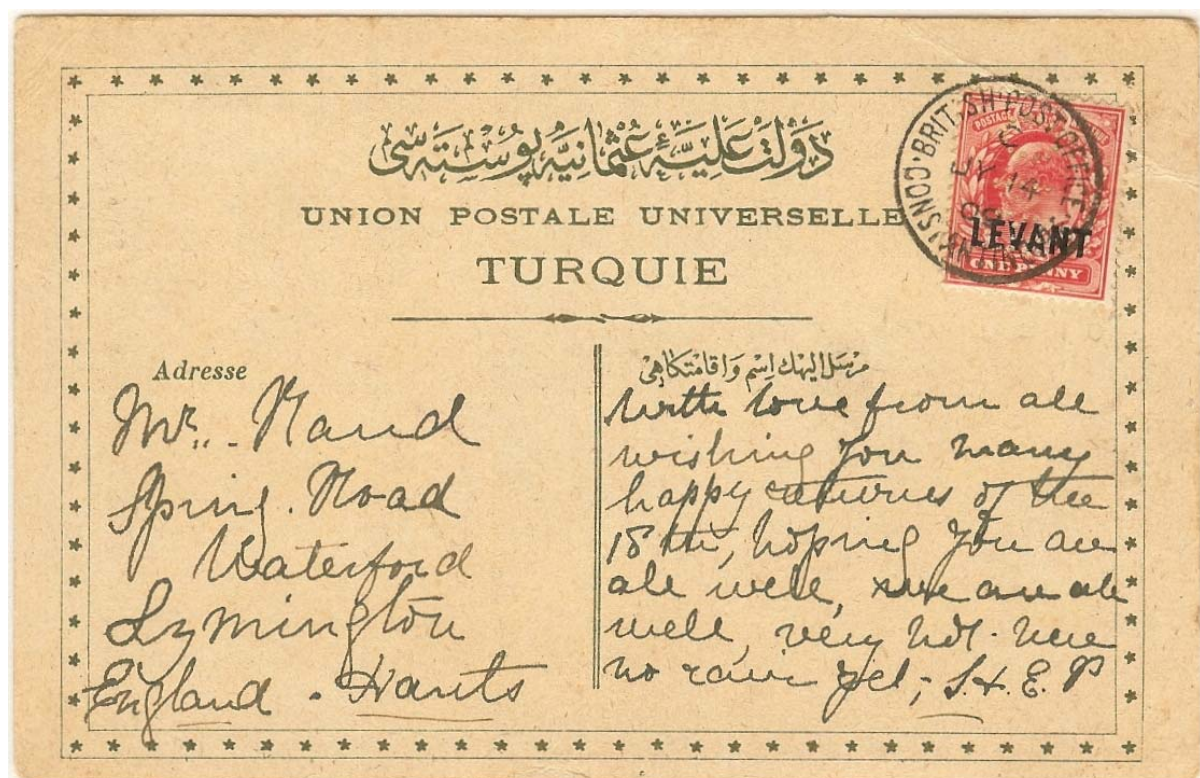 دولت عليۀ عثمانيه پوسته سى
UNION POSTALE UNIVERSELLE
TURQUIE
BRITISH POST OFFICE
JY 14
09
POSTAGE
LEVANT
ONE PENNY
Adresse
Mr. Rand
Spring. Road
Waterford
Lymington
England. Hants
مرسل اليهك اسم و اقامتكاهى
With love from all
wishing you many
happy returns of the
18th, hoping you are
all well, we are all
well, very hot here
no rain yet, S.H.E.P